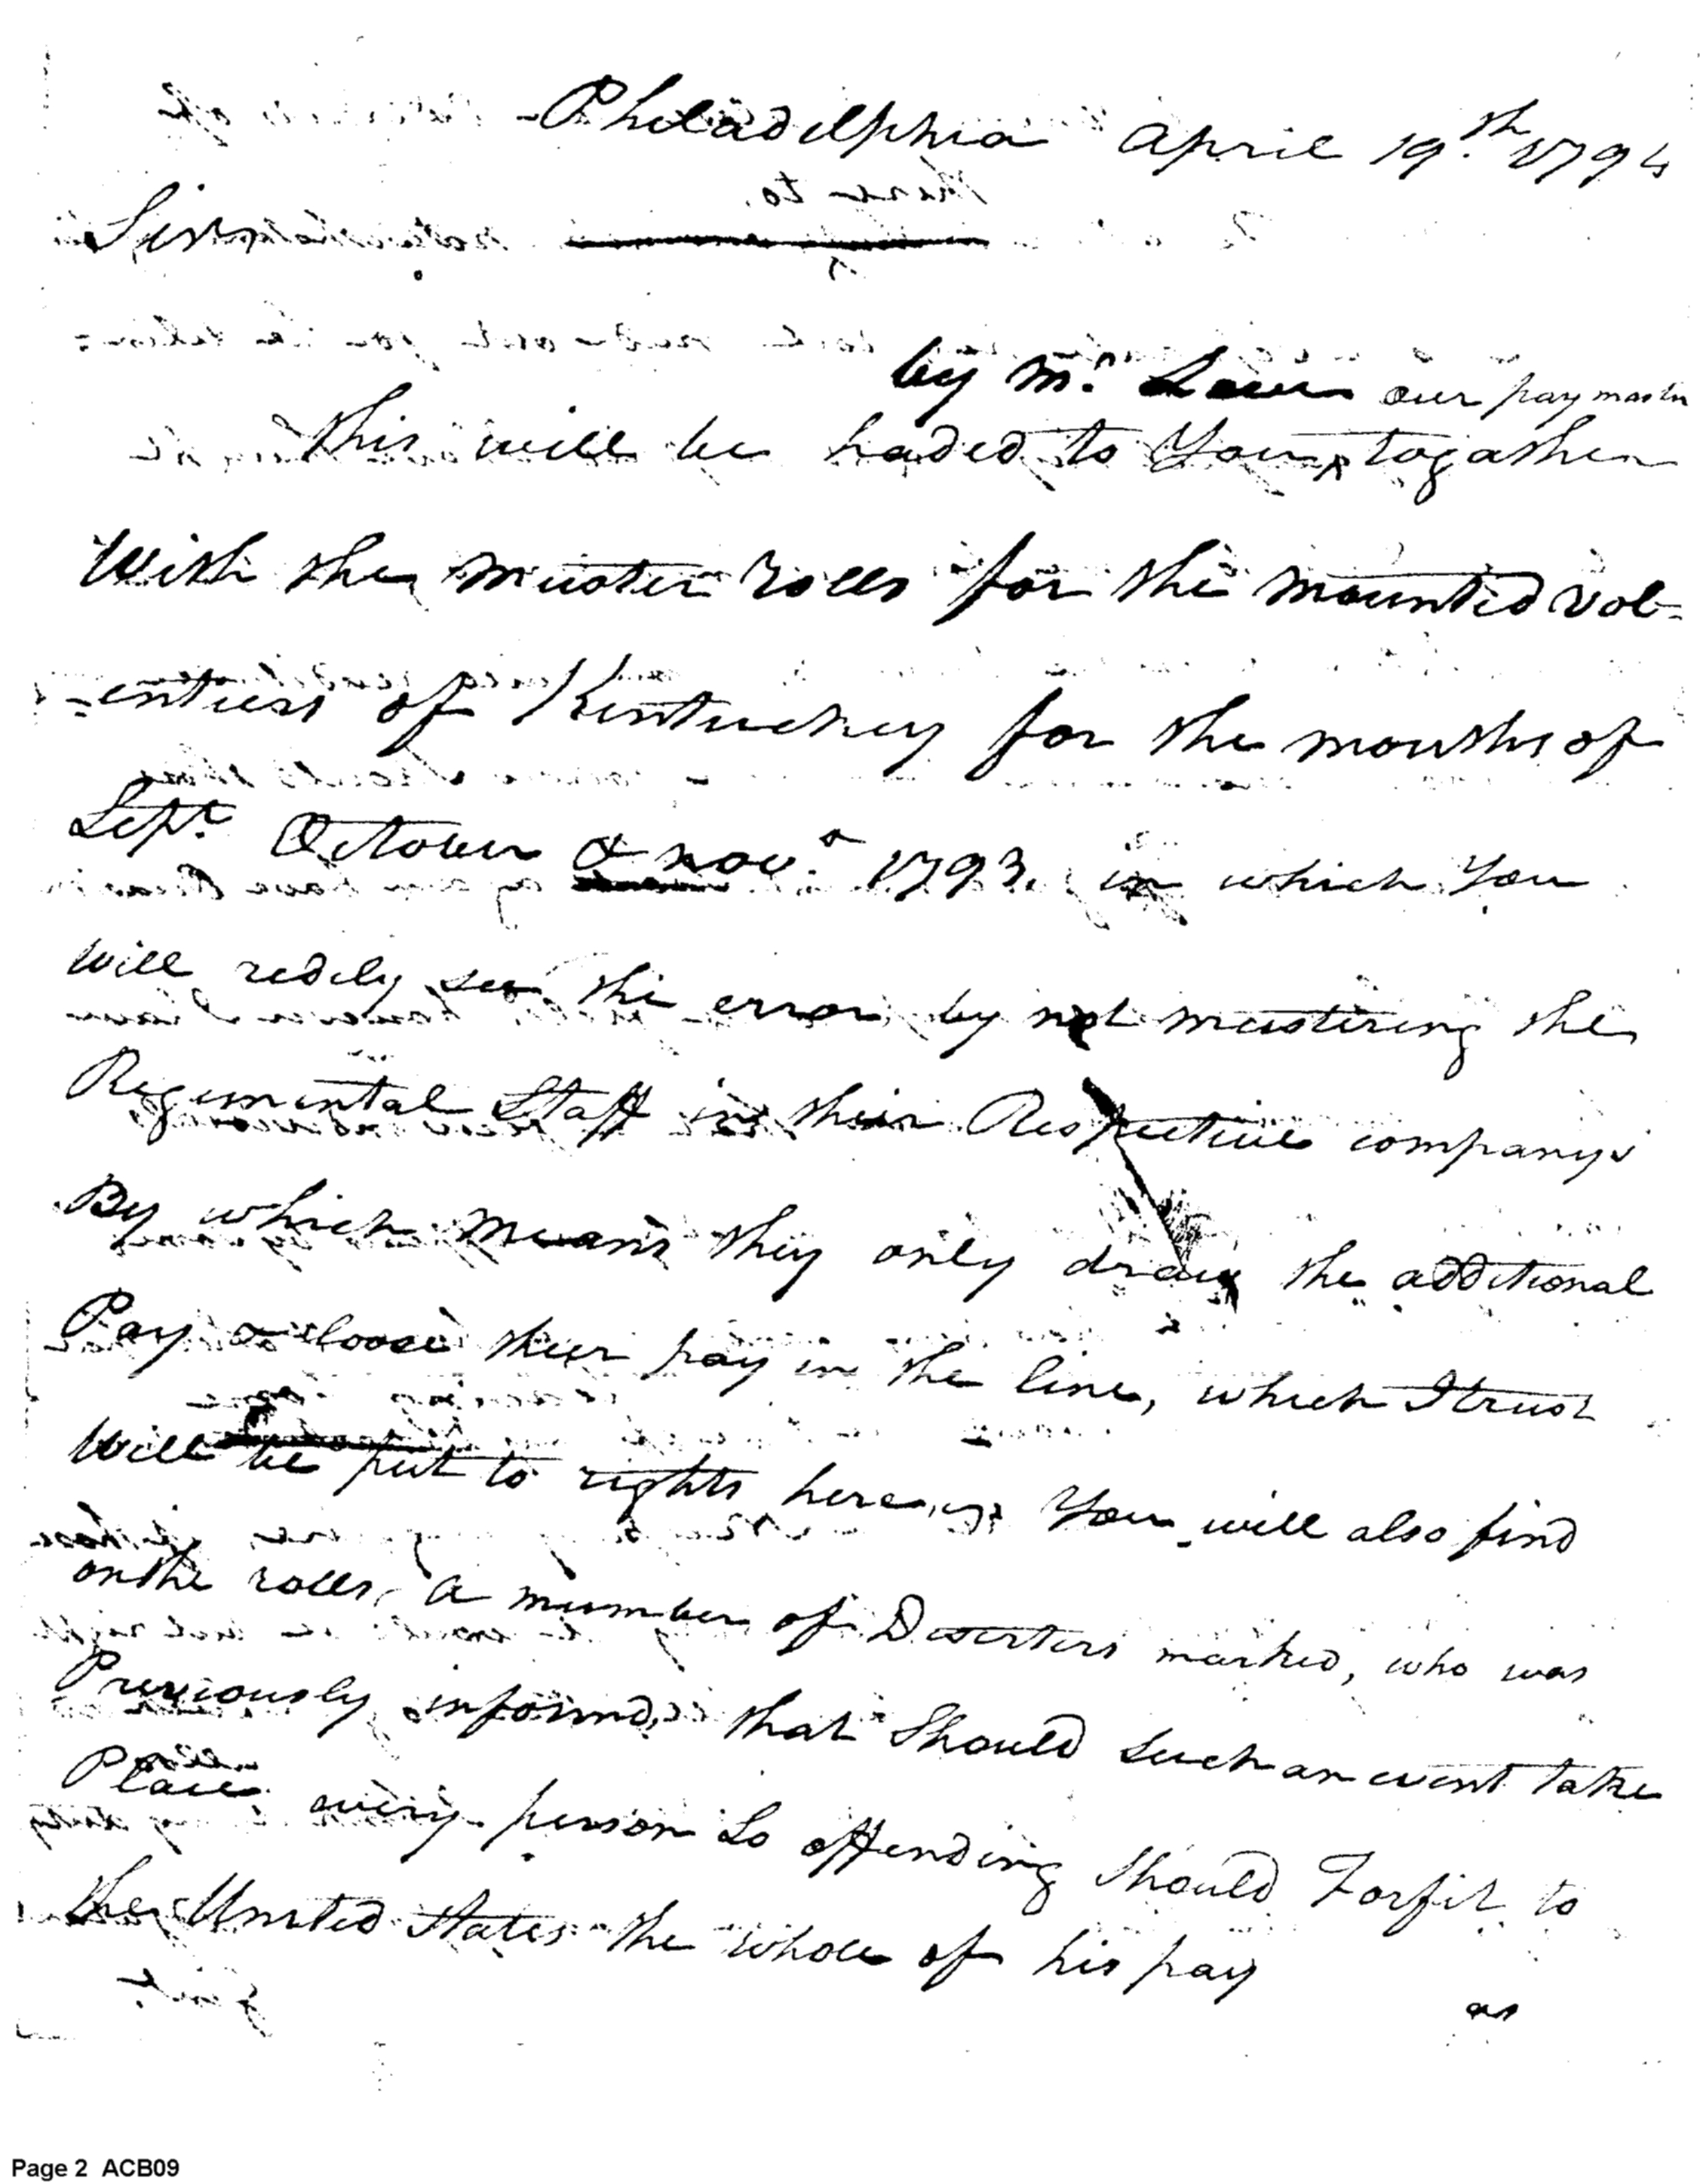 Philadelphia April 19th 1794
Sir
by Mr. our paymaster
this will be haded to You togather
With the muster rolls for the mounted vol-
-entiers of Kentuckey for the months of
Sept. October & novr. 1793. in which You
will redily see the error, by not mustering the
Regimental Staff in their Respective companys
By which means they only draw the additional
Pay & loose their pay in the line, which I trust
Will be put to rights here, You will also find
on the rolls, a number of Deserters marked, who was
Previously informd, that Should such an event take
Place every person So offending Should Forfit to
the United States the whole of his pay
as
Page 2 ACB09